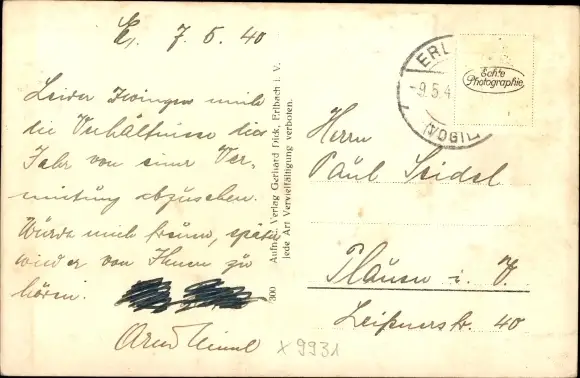 7. 5. 40
Leider zwingen mich
die Verhältnisse dies
Jahr von einer Ver-
mietung abzusehen.
Würde mich freuen, später
wieder von Ihnen zu
hören.
300 Aufn. u. Verlag Gerhard Dick, Erlbach i. V.
Jede Art Vervielfältigung verboten.
ERL
-9.5.4
(VOGTL
Echte
Photographie
Herrn
Paul Seidel
Plauen i. V.
40
X 9931